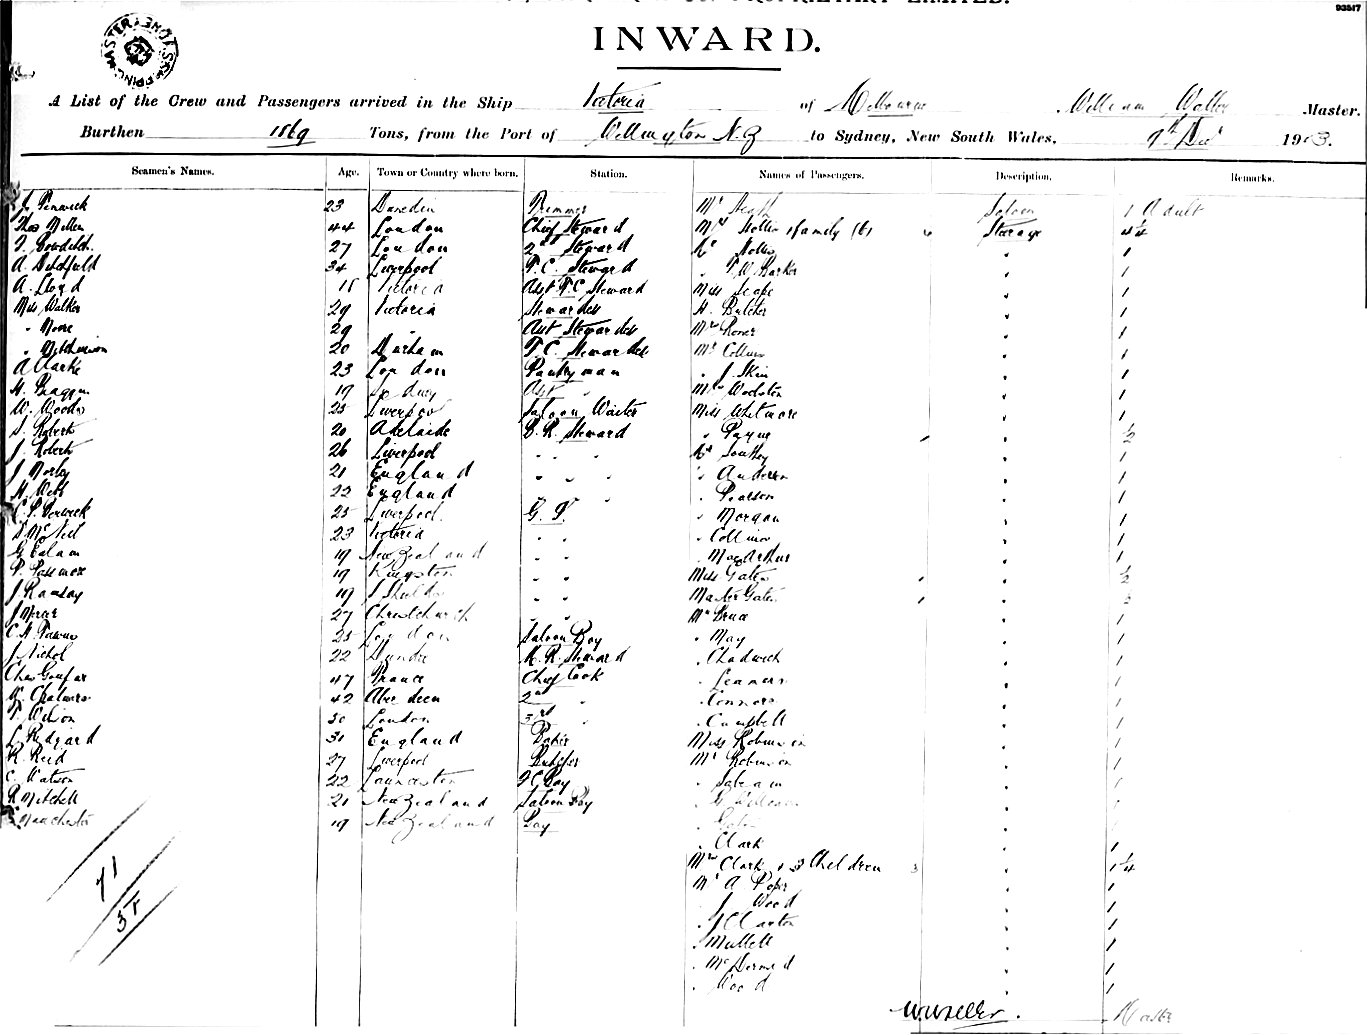 PROPRIETARY LIMITED.
93517
INWARD.
A List of the Crew and Passengers arrived in the Ship Victoria of Melbourne William Waller Master.
Burthen 1869 Tons, from the Port of Wellington N.Z to Sydney, New South Wales, 9th Dec 1903.
Seamen's Names. Age. Town or Country where born. Station. Names of Passengers. Description. Remarks.
J. Fenwick 23 Dunedin Trimmer Mr Heath Saloon 1 Adult
Thos Mellen 44 London Chief Steward Mrs Hollis & family (6) 6 Steerage 4 1/4
F. Bowditch 27 London 2nd Steward Mr Hollis " 1
A. 34 Liverpool F.C. Steward " T. W. Barker " 1
A. Lloyd 18 Victoria Asst F.C. Steward Miss " 1
Miss Walker 29 Victoria Stewardess H. Butcher " 1
" Moore 29 " Asst Stewardess Mrs " 1
" 20 Durham F.C. Stewardess Mr Collins " 1
A Clarke 23 London Pantryman " J. Skin " 1
H. 19 Sydney Asst " Mrs " 1
W. Woods 25 Liverpool Saloon Waiter Miss Whitmore " 1
S. Roberts 20 Adelaide B. R. Steward " Payne / " 1/2
J. Roberts 26 Liverpool " " " Mr Southey " 1
J Morley 21 England " " " " Anderson " 1
H. Webb 22 England " " " " Pearson " 1
25 Liverpool G. S. " Morgan " 1
D McNeil 23 Victoria " " " Collins " 1
G Ealam 19 New Zealand " " " MacArthur " 1
P. Passmore 19 Kingston " " Miss Gates / " 1/2
J Ramsay 19 S Shields " " Master Gates / " 1/2
J Mercer 27 Christchurch " " Mr Bruce " 1
25 London Saloon Boy " May " 1
J Nichol 22 Dundee M. R. Steward " Chadwick " 1
Chas 47 France Chief Cook " " 1
Chalmers 42 Aberdeen 2nd " " Connors " 1
T. Wilson 30 London 3rd " " Campbell " 1
31 England Baker Miss Robinson " 1
R. Reid 27 Liverpool Butcher Mr Robinson " 1
C. Watson 22 Launceston F.C. Boy " " 1
R Mitchell 21 New Zealand Saloon Boy " " 1
Manchester 19 New Zealand Boy " "
" Clark " 1
Mrs Clark & 3 Children 3 " 1 1/4
Mr A Pope " 1
" J Wood " 1
71 " J Clarton " 1
" Mullett " 1
" McDermid " 1
" Wood " 1
W Waller. Master